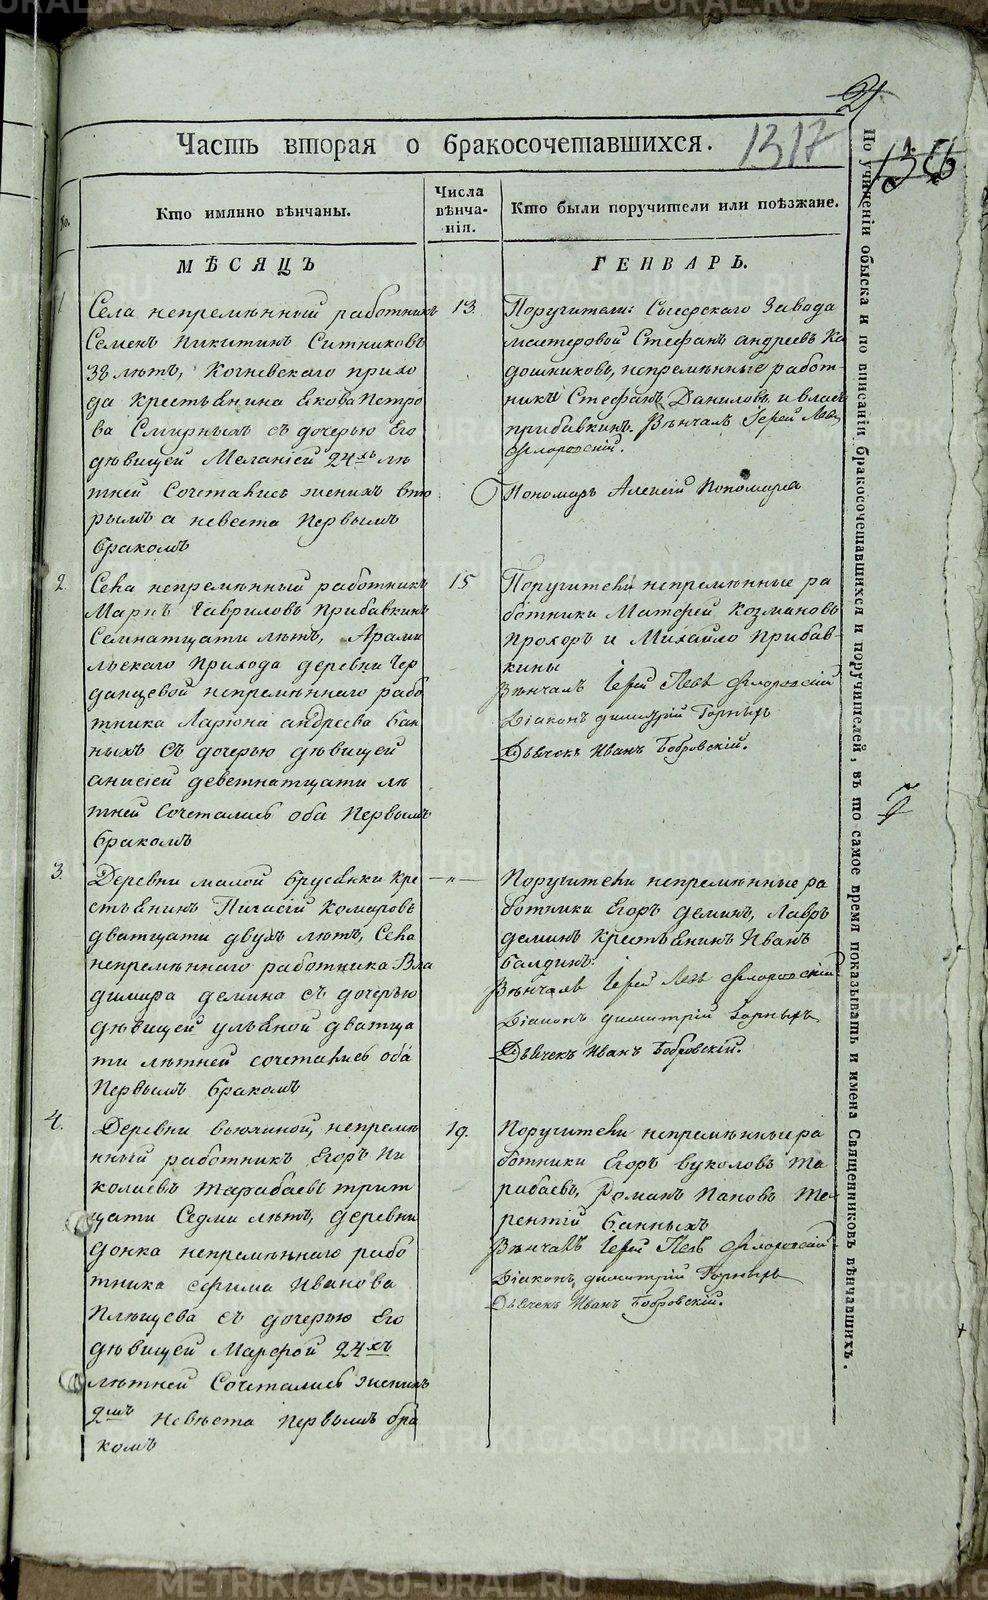 METRIKI.GASO-URAL.RU
Часть вторая о бракосочетавшихся.
1317
136
№.
Кто имянно вѣнчаны.
Числа вѣнча-нія.
Кто были поручители или поѣзжане.
МѢСЯЦЪ
ГЕНВАРЬ.
1
Села непремѣнный работникъ
Семенъ Никитинъ Ситниковъ
38 лѣтъ, Кочневскаго прихо
да крестьянина Якова Петро
ва Смирныхъ съ дочерью Его
дѣвицей Меланіей 24хъ лѣ
тней Сочетались женихъ вто
рымъ а невеста Первымъ
бракомъ
13.
Поручители: Сысерскаго Завода
мастеровой Стефанъ андреевъ Ка
дошниковъ, непремѣнные работ-
ники Стефанъ Даниловъ и власъ
прибавкинъ. Вѣнчалъ Іерей Левъ
Флоровскій.
Пономарь Алексій Пономарев
2.
Села непремѣнный работникъ
Маркъ Гавриловъ Прибавкинъ
Семнатцати лѣтъ, Арами
льскаго Прихода деревни Чер
данцевой непремѣннаго рабо
тника Ларіона андреева Бан
ныхъ Съ дочерью дѣвицей
анисіей деветнатцати лѣ
тней Сочетались оба Первымъ
бракомъ
15
Поручители непремѣнные ра
ботники Матфей Козмановъ
Прохоръ и Михайло Прибав-
кины
Вѣнчалъ Іерей Левъ Флоровскій
Діаконъ Димитрій Горныхъ
Дьячекъ Иванъ Бобровскій.
3.
Деревни малой брусянки кре
стьянинъ Пигасій Комаровъ
дватцати двухъ лѣтъ, Села
непремѣннаго работника Вла
димира демина съ дочерью
дѣвицей ульяной дватца
ти лѣтней сочетались оба
Первымъ бракомъ
—"—
Поручители непремѣнные ра
ботники Егоръ деминъ, Лавръ
деминъ крестьянинъ Иванъ
балдинъ:
Вѣнчалъ Іерей Левъ Флоровскій
Діаконъ Димитрій Горныхъ
Дьячекъ Иванъ Бобровскій.
4.
Деревни вьюхиной, непремѣ
нный работникъ Егоръ Ни
колаевъ Тарабаевъ трит
цати Седми лѣтъ, деревни
непремѣннаго рабо
тника ефима Иванова
Плющева съ дочерью Его
дѣвицей Марфой 24хъ
лѣтней Сочетались женихъ
2мъ Невѣста Первымъ бра
комъ
19.
Поручители непремѣнные ра
ботники Егоръ вуколовъ Та
рабаевъ, Романъ Пановъ Те
рентій Банныхъ
Вѣнчалъ Іерей Левъ Флоровскій
Діаконъ Димитрій Горныхъ
Дьячекъ Иванъ Бобровскій.
По учиненіи обыска и по вписаніи бракосочетавшихся и поручителей, въ то самое время показывать и имена Священниковъ вѣнчавшихъ.